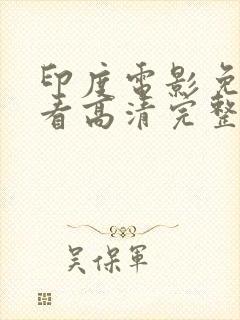 印度電影免
看高清完整
吴保軍